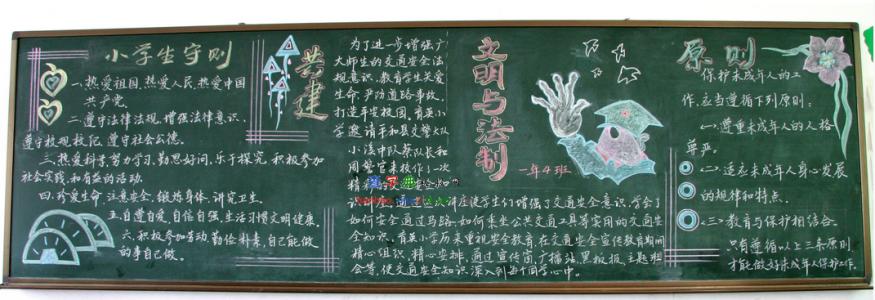 小学生守则
一、热爱祖国,热爱人民,热爱中国
共产党。
二、遵守法律法规,增强法律意识,
遵守校规校纪,遵守社会公德。
三、热爱科学,努力学习,勤思好问,乐于探究,积极参加
社会实践和有益的活动.
四、珍爱生命,注意安全,锻炼身体,讲究卫生。
五、自尊自爱,自信自强,生活习惯文明健康。
六、积极参加劳动,勤俭朴素,自己能做
的事自己做。
共建
为了进一步增强广
大师生的交通安全法
规意识,教育学生关爱
生命,严防道路事故,
打造平安校园,育英小
学邀请平和县交警大队
小溪中队蔡队长和
周警官来校作了一次
精彩的交通安全知
识讲座,通过这次讲座使学生们增强了交通安全意识,学会了
如何安全通过马路,如何乘坐公共交通工具等实用的交通安
全知识。育英小学历来重视安全教育,在交通安全宣传教育期间
精心组织,精心安排,通过宣传窗,广播站,黑板报,主题班
会等,使交通安全知识深入到每个同学心中。
文明与法制
一年4班
原则
保护未成年人的工
作,应当遵循下列原则:
<一>尊重未成年人的人格
尊严。
<二>适应未成年人身心发展
的规律和特点.
<三>教育与保护相结合。
只有遵循以上三条原则
才能做好未成年人保护工作。